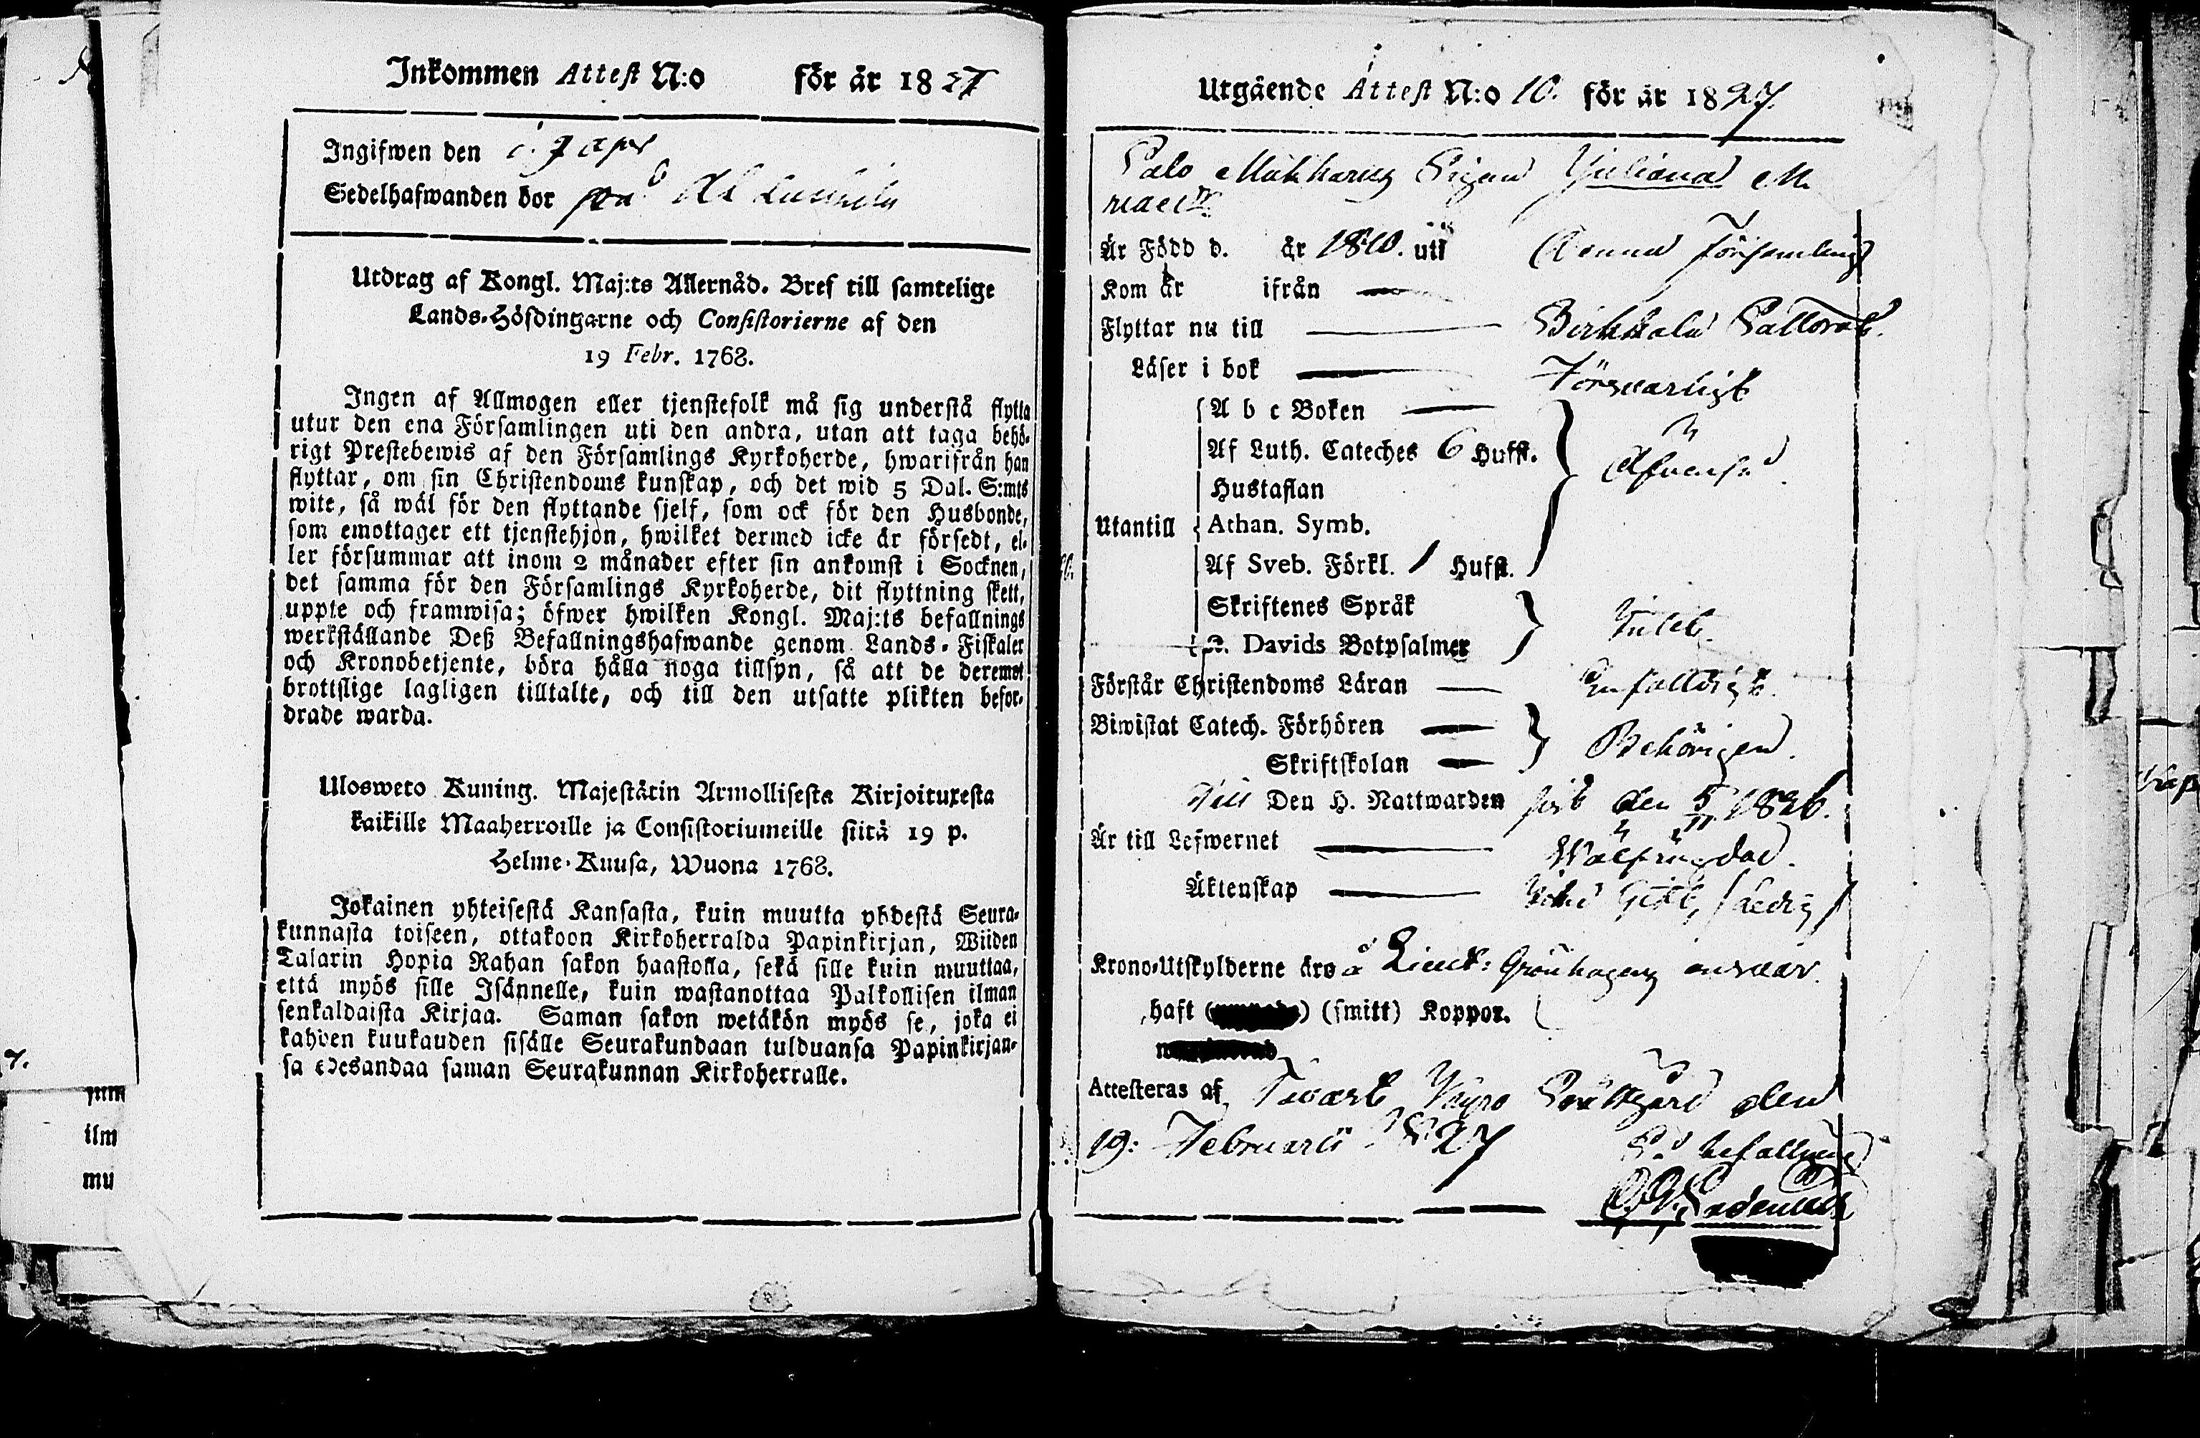 Inkommen Attest N:o för år 1827
Ingifwen den
Sedelhafwanden bor på
Utdrag af Kongl. Maj:ts Allernåd. Bref till samtelige
Lands-Höfdingarne och Consistorierne af den
19 Febr. 1768.
Ingen af Allmogen eller tjenstefolk må sig understå flytta
utur den ena Församlingen uti den andra, utan att taga behö-
rigt Prestebewis af den Församlings Kyrkoherde, hwarifrån han
flyttar, om sin Christendoms kunskap, och det wid 5 Dal. S:mts
wite, så wäl för den flyttande sjelf, som ock för den Husbonde,
som emottager ett tjenstehjon, hwilket dermed icke är försedt, el-
ler försummar att inom 2 månader efter sin ankomst i Socknen,
det samma för den Församlings Kyrkoherde, dit flyttning skett,
uppte och framwisa; öfwer hwilken Kongl. Maj:ts befallnings
werkställande Deß Befallningshafwande genom Lands-Fiskaler
och Kronobetjente, böra hålla noga tillsyn, så att de deremot
brottslige lagligen tilltalte, och till den utsatte plikten befor-
drade warda.
Ulosweto Kuning. Majestätin Armollisesta Kirjoituxesta
kaikille Maaherroille ja Consistoriumeille siitä 19 p.
Helme-Kuusa, Wuona 1768.
Jokainen yhteisestä Kansasta, kuin muutta yhdestä Seura-
kunnasta toiseen, ottakoon Kirkoherralda Papinkirjan, Wiiden
Talarin Hopia Rahan sakon haastolla, sekä sille kuin muuttaa,
että myös sille Isännelle, kuin wastanottaa Palkollisen ilman
senkaldaista Kirjaa. Saman sakon wetäkön myös se, joka ei
kahden kuukauden sisälle Seurakundaan tulduansa Papinkirjan-
sa edesandaa saman Seurakunnan Kirkoherralle.
7.
ilm
mu
Utgående Attest N:o 10. för år 1827.
Palo Mäkkäreg Pigan Juliana M.
Är Född d. år 1810. uti Församling
Kom år ifrån
Flyttar nu till Birkkala Pastorat.
Läser i bok Försvarligt
A b c Boken
Af Luth. Cateches 6 Huffst.
Hustaflan
Utantill Athan. Symb.
Af Sveb. Förkl. / Huffst.
Skriftenes Språk
2. Davids Botpsalmer Intet.
Förstår Christendoms Läran Enfaldigt.
Biwistat Catech. Förhören
Skriftskolan Behörigen.
Till Den H. Nattwarden sist den 5/11 1826.
Är till Lefwernet Wälfrägdad.
Äktenskap Icke Gift, /Ledig/
Krono-Utskylderne äro å Lieut: Grönhagens ansvar.
haft () (smitt) Koppor.
Attesteras af Kyro Prästgård den
19: Februarii 1827
befallning